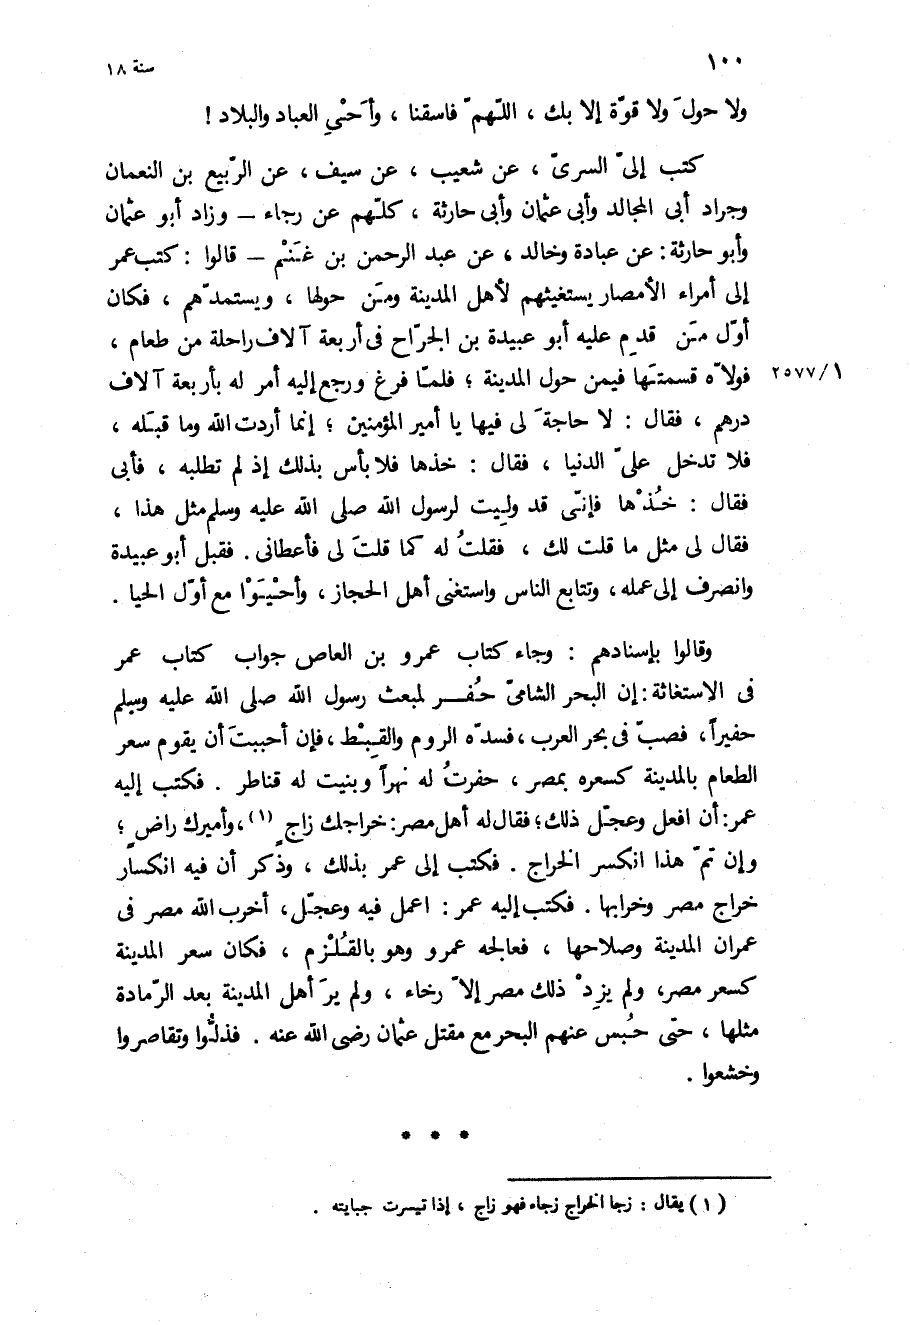 ١٠٠
سنة ١٨
ولا حولَ ولا قوّة إلا بك ، اللّهمّ فاسقنا ، وأحْىِ العباد والبلاد !
كتب إلىّ السرىّ ، عن شعيب ، عن سيف ، عن الرّبيع بن النعمان
وجراد أبى المجالد وأبى عثمان وأبى حارثة ، كلّهم عن رجاء – وزاد أبو عثمان
وأبو حارثة : عن عبادة وخالد ، عن عبد الرحمن بن غَنْم – قالوا : كتب عمر
إلى أمراء الأمصار يستغيثهم لأهل المدينة ومَن حولها ، ويستمدّهم ، فكان
أوّل مَن قدِم عليه أبو عبيدة بن الجرّاح فى أربعة آلاف راحلة من طعام ،
فولاّه قسمتَها فيمن حول المدينة ؛ فلمّا فرغ ورجع إليه أمر له بأربعة آلاف
٢٥٧٧/١
درهم ، فقال : لا حاجةَ لى فيها يا أمير المؤمنين ؛ إنما أردت الله وما قبَله ،
فلا تدخل علىّ الدنيا ، فقال : خذها فلا بأس بذلك إذ لم تطلبه ، فأبى
فقال : خُذْها فإنّى قد ولِيت لرسول الله صلى الله عليه وسلم مثل هذا ،
فقال لى مثل ما قلت لك ، فقلتُ له كما قلتَ لى فأعطانى. فقبل أبو عبيدة
وانصرف إلى عمله، وتتابع الناس واستغنى أهل الحجاز ، وأحْيَوْا مع أوّل الحيا .
وقالوا بإسنادهم : وجاء كتاب عمرو بن العاص جواب كتاب عمر
فى الاستغاثة : إن البحر الشامىّ حُفِر لمبعث رسول الله صلى الله عليه وسلم
حفيراً، فصبّ فى بحر العرب ، فسدّه الروم والقِبْط ، فإن أحببتَ أن يقوم سعر
الطعام بالمدينة كسعره بمصر ، حفرتُ له نهراً وبنيت له قناطر . فكتب إليه
عمر: أن افعل وعجّل ذلك؛ فقال له أهل مصر: خراجك زاجٍ (١)، وأميرك راضٍ ؛
وإن تمّ هذا انكسر الخراج . فكتب إلى عمر بذلك ، وذكر أن فيه انكسار
خراج مصر وخرابها . فكتب إليه عمر : اعمل فيه وعجّل، أخرب الله مصر فى
عمران المدينة وصلاحها ، فعالجه عمرو وهو بالقُلْزم ، فكان سعر المدينة
كسعر مصر، ولم يزِدْ ذلك مصر إلاّ رخاء ، ولم يرَ أهل المدينة بعد الرّمادة
مثلها ، حتّى حُبس عنهم البحر مع مقتل عثمان رضى الله عنه . فذلُّوا وتقاصروا
وخشعوا .
* * *
(١) يقال : زجا الخراج زجاء فهو زاج ، إذا تيسرت جبايته .